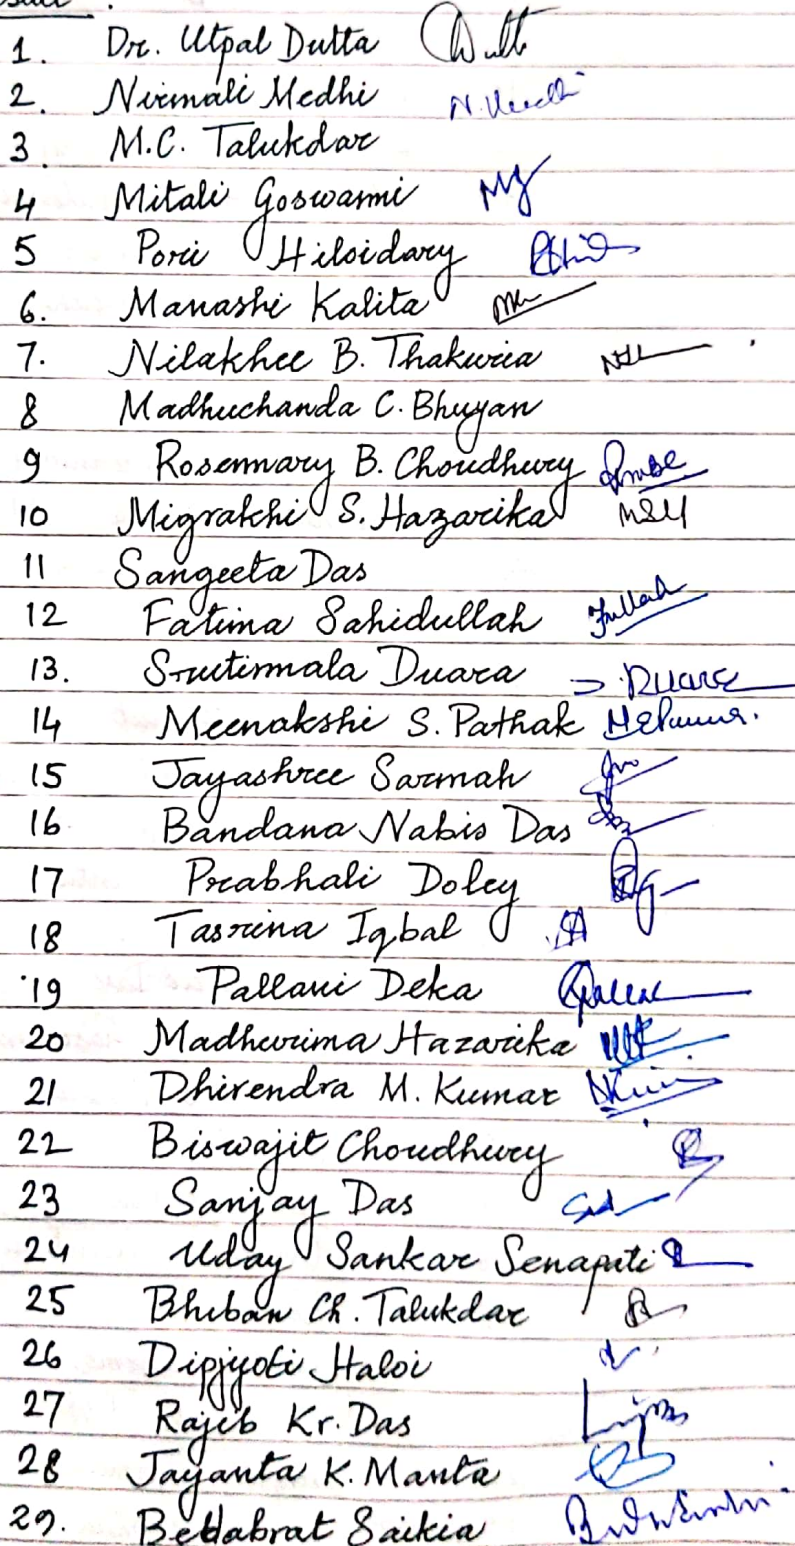 1. Dr. Utpal Dutta
2. Nirmali Medhi N. Medhi
3. M.C. Talukdar
4 Mitali Goswami MG
5 Pori Hiloidary
6. Manashi Kalita MK
7. Nilakhee B. Thakuria
8 Madhuchanda C. Bhuyan
9 Rosemmary B. Choudhury
10 Migrakhi S. Hazarika MSH
11 Sangeeta Das
12 Fatima Sahidullah
13. Srutimala Duara S. Duara
14 Meenakshi S. Pathak
15 Jayashree Sarmah
16 Bandana Nabis Das
17 Prabhali Doley
18 Tasrina Iqbal
19 Pallavi Deka
20 Madhurima Hazarika
21 Dhirendra M. Kumar
22 Biswajit Choudhury
23 Sanjay Das
24 Uday Sankar Senapati
25 Bhuban Ch. Talukdar
26 Dipjyoti Haloi
27 Rajib Kr. Das
28 Jayanta K. Manta
29. Bedabrat Saikia